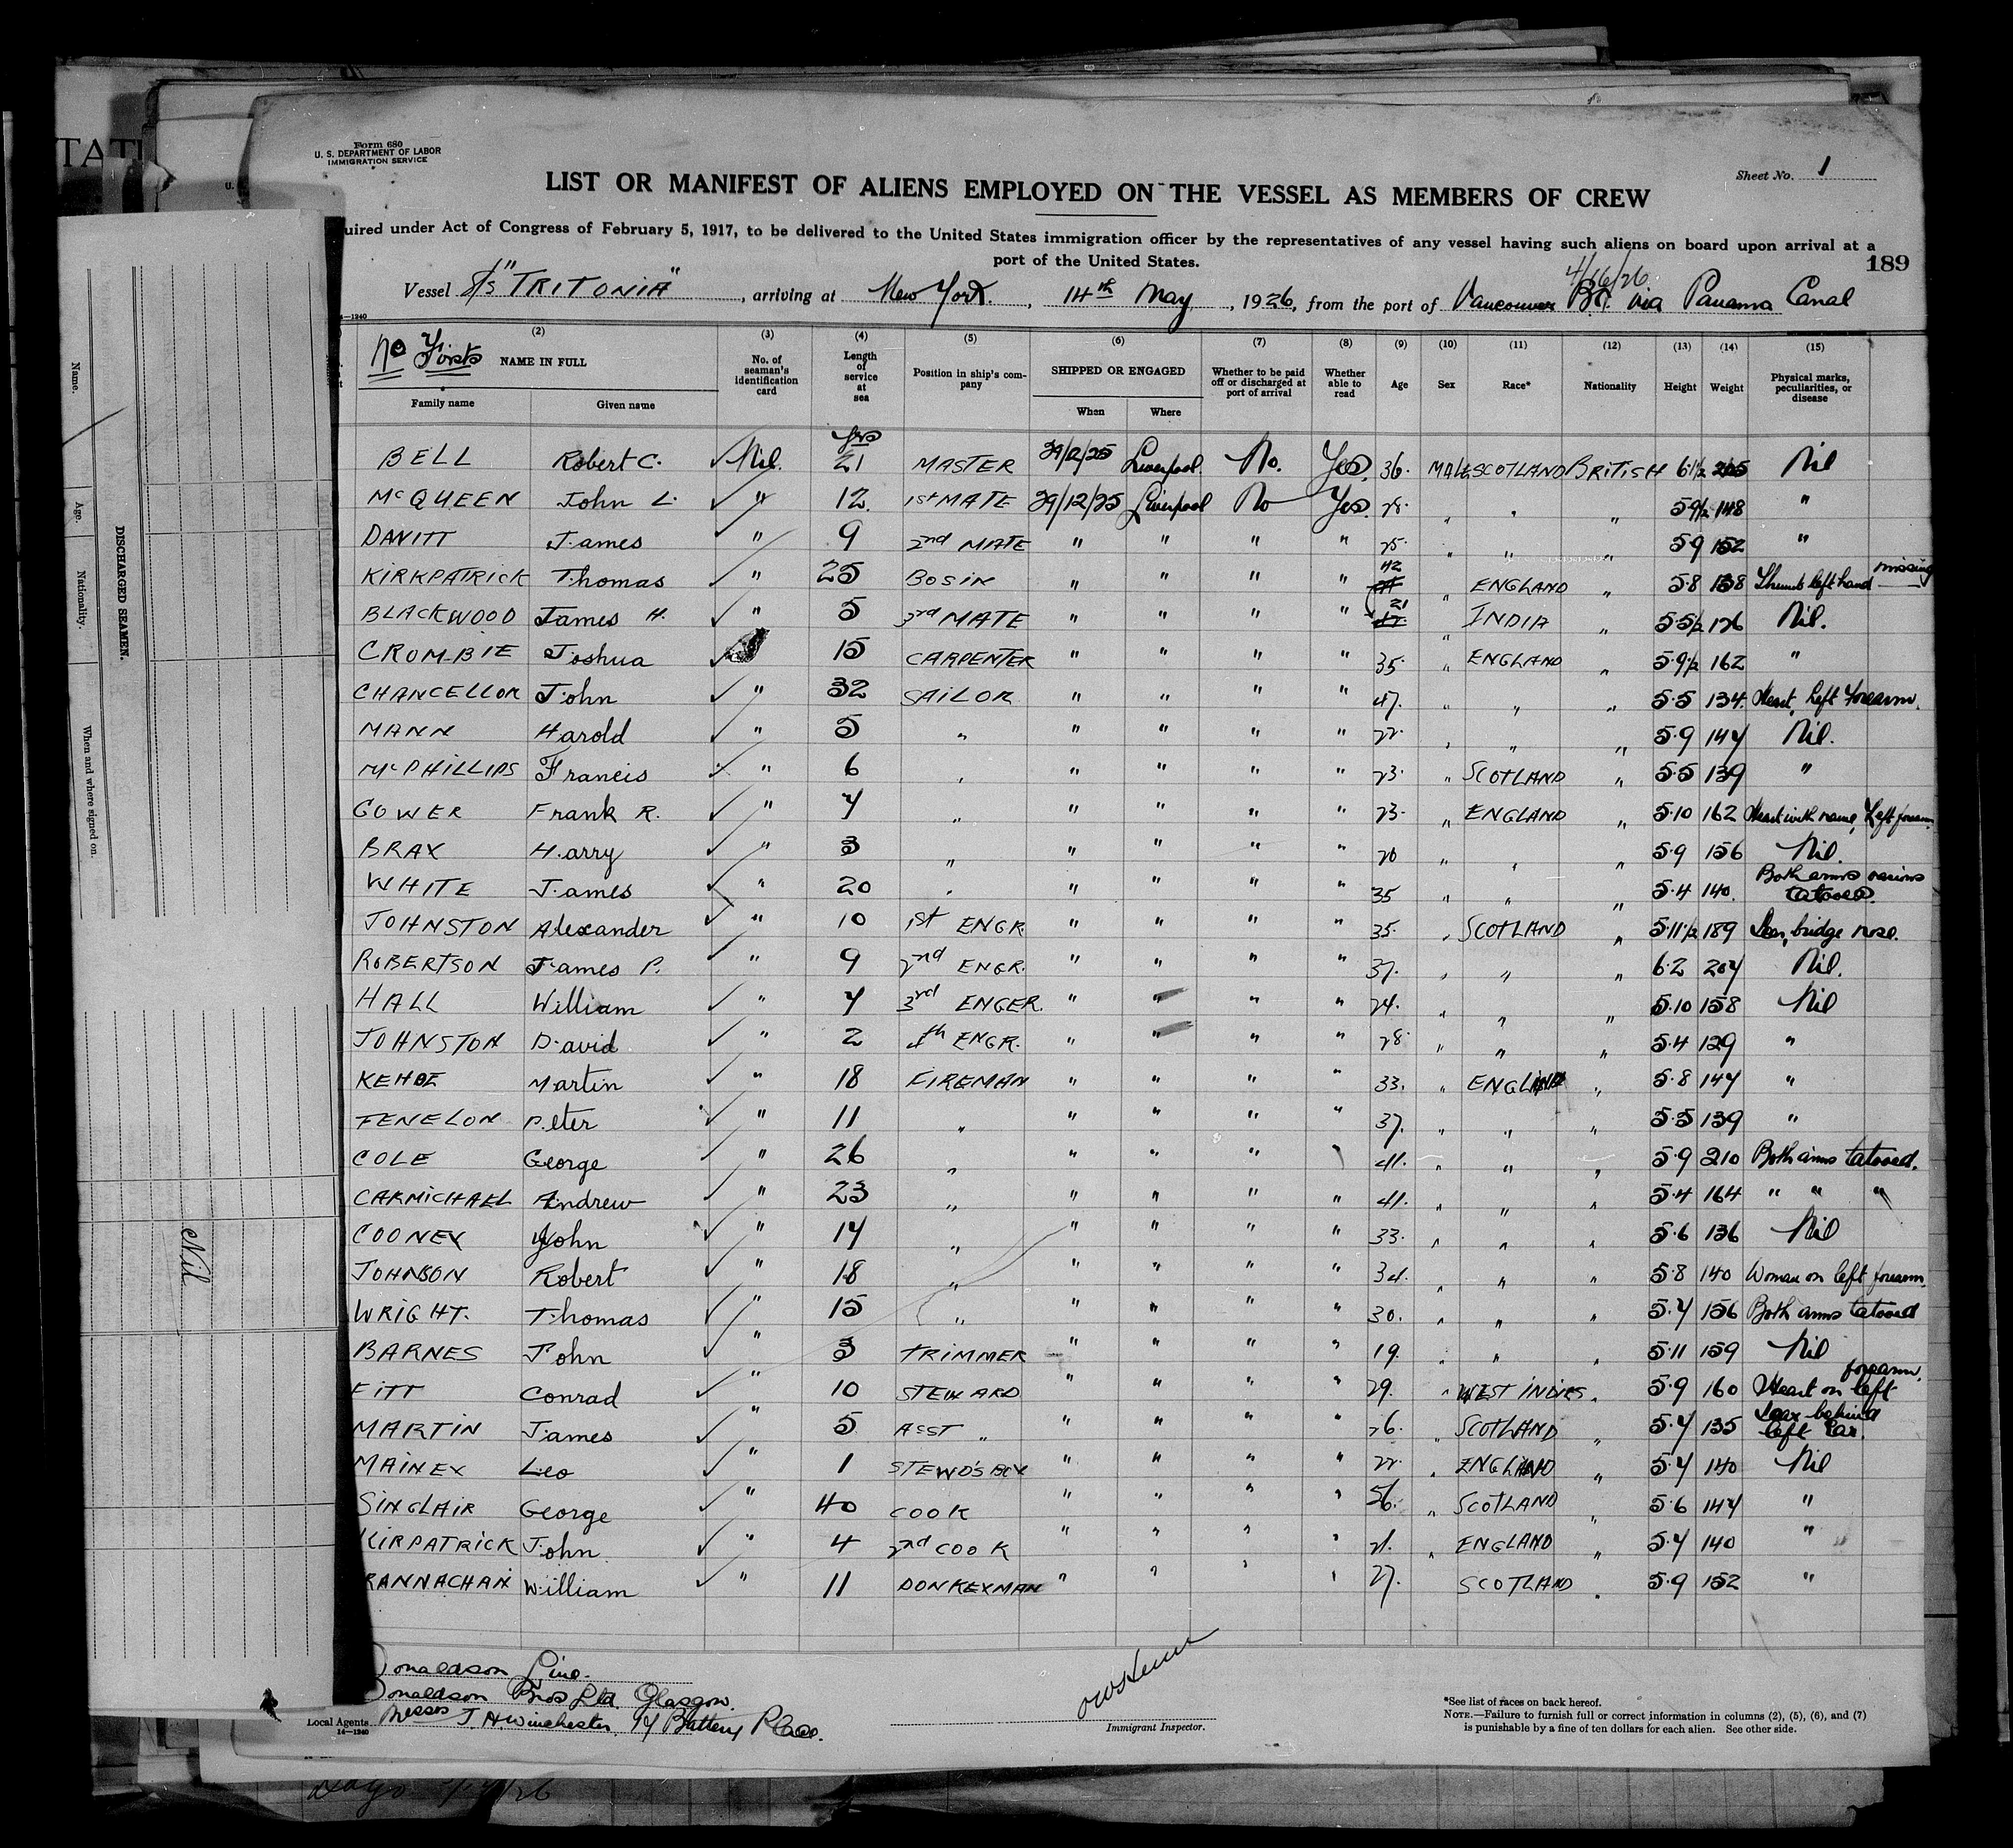 Form 680
U. S. DEPARTMENT OF LABOR
IMMIGRATION SERVICE
Sheet No. 1
LIST OR MANIFEST OF ALIENS EMPLOYED ON THE VESSEL AS MEMBERS OF CREW
uired under Act of Congress of February 5, 1917, to be delivered to the United States immigration officer by the representatives of any vessel having such aliens on board upon arrival at a
port of the United States.
189
4/16/26
Vessel S/S "TRITONIA", arriving at New York, 14th May, 1926, from the port of Vancouver B.C. via Panama Canal
14—1240
No Firsts
(2) (3) (4) (5) (6) (7) (8) (9) (10) (11) (12) (13) (14) (15)
NAME IN FULL No. of seaman's identification card Length of service at sea Position in ship's company SHIPPED OR ENGAGED Whether to be paid off or discharged at port of arrival Whether able to read Age Sex Race* Nationality Height Weight Physical marks, peculiarities, or disease
Family name Given name When Where
yrs
BELL Robert C. Nil. 21 MASTER 29/12/25 Liverpool No. Yes. 36. MALE SCOTLAND BRITISH 6.1½ 205 Nil
McQUEEN John L. " 12. 1st MATE 29/12/25 Liverpool No Yes. 28. " " " 5.9½ 148 "
DAVITT James " 9 2nd MATE " " " " 25. " " " 5.9 152 "
KIRKPATRICK Thomas " 25 BOSIN " " " " 42 " ENGLAND " 5.8 158 Thumb left hand missing
BLACKWOOD James H. " 5 3rd MATE " " " " 21 " INDIA " 5.5½ 126 Nil.
CROMBIE Joshua 15 CARPENTER " " " " 35. " ENGLAND " 5.9½ 162 "
CHANCELLOR John " 32 SAILOR " " " " 47. " " " 5.5 134. Heart, Left Forearm.
MANN Harold " 5 " " " " " 22. " " " 5.9 147 Nil.
McPHILLIPS Francis " 6 " " " " " 23. " SCOTLAND " 5.5 139 "
GOWER Frank R. " 7 " " " " " 23. " ENGLAND " 5.10 162 Heart with name, Left forearm
BRAY Harry " 3 " " " " " 20 " " " 5.9 156 Nil.
WHITE James " 20 " " " " " 35 " " " 5.4 140. Both arms various tatooed.
JOHNSTON Alexander " 10 1st ENGR. " " " " 35. " SCOTLAND " 5.11½ 189 Scar, bridge nose.
ROBERTSON James P. " 9 2nd ENGR. " " " " 37. " " " 6.2 207 Nil.
HALL William " 7 3rd ENGER. " " " " 24. " " " 5.10 158 Nil
JOHNSTON David " 2 4th ENGR. " " " " 28. " " " 5.4 129 "
KEHOE Martin " 18 FIREMAN " " " " 33. " ENGLAND " 5.8 147 "
FENELON Peter " 11 " " " " " 37. " " " 5.5 139 "
COLE George " 26 " " " " " 41. " " " 5.9 210 Both arms tatooed.
CARMICHAEL Andrew " 23 " " " " " 41. " " " 5.4 164 " " "
COONEY John " 14 " " " " " 33. " " " 5.6 136 Nil
JOHNSON Robert " 18 " " " " " 34. " " " 5.8 140 Woman on left forearm.
WRIGHT. Thomas " 15 " " " " " 30. " " " 5.7 156 Both arms tatooed
BARNES John " 3 TRIMMER " " " " 19. " " " 5.11 159 Nil
FITT Conrad " 10 STEWARD " " " " 29. " WEST INDIES " 5.9 160 Heart on left forearm.
MARTIN James " 5 ASST " " " " " 26. " SCOTLAND " 5.7 135 Scar behind left Ear.
MAINEY Leo " 1 STEWD'S BOY " " " " 22. " ENGLAND " 5.7 140 Nil
SINCLAIR George " 40 COOK " " " " 56. " SCOTLAND " 5.6 147 "
KIRPATRICK John " 4 2nd COOK " " " " 21. " ENGLAND " 5.7 140 "
RANNACHAN William " 11 DONKEYMAN " " " " 27. SCOTLAND " 5.9 152 "
onaldson Line.
onaldson Bros Ltd Glasgow.
Local Agents Messrs J H Winchester 17 Battery Place.
14—1240
Immigrant Inspector.
*See list of races on back hereof.
NOTE.—Failure to furnish full or correct information in columns (2), (5), (6), and (7)
is punishable by a fine of ten dollars for each alien. See other side.
DISCHARGED SEAMEN.
Name.
Age.
Nationality.
When and where signed on.
Nil